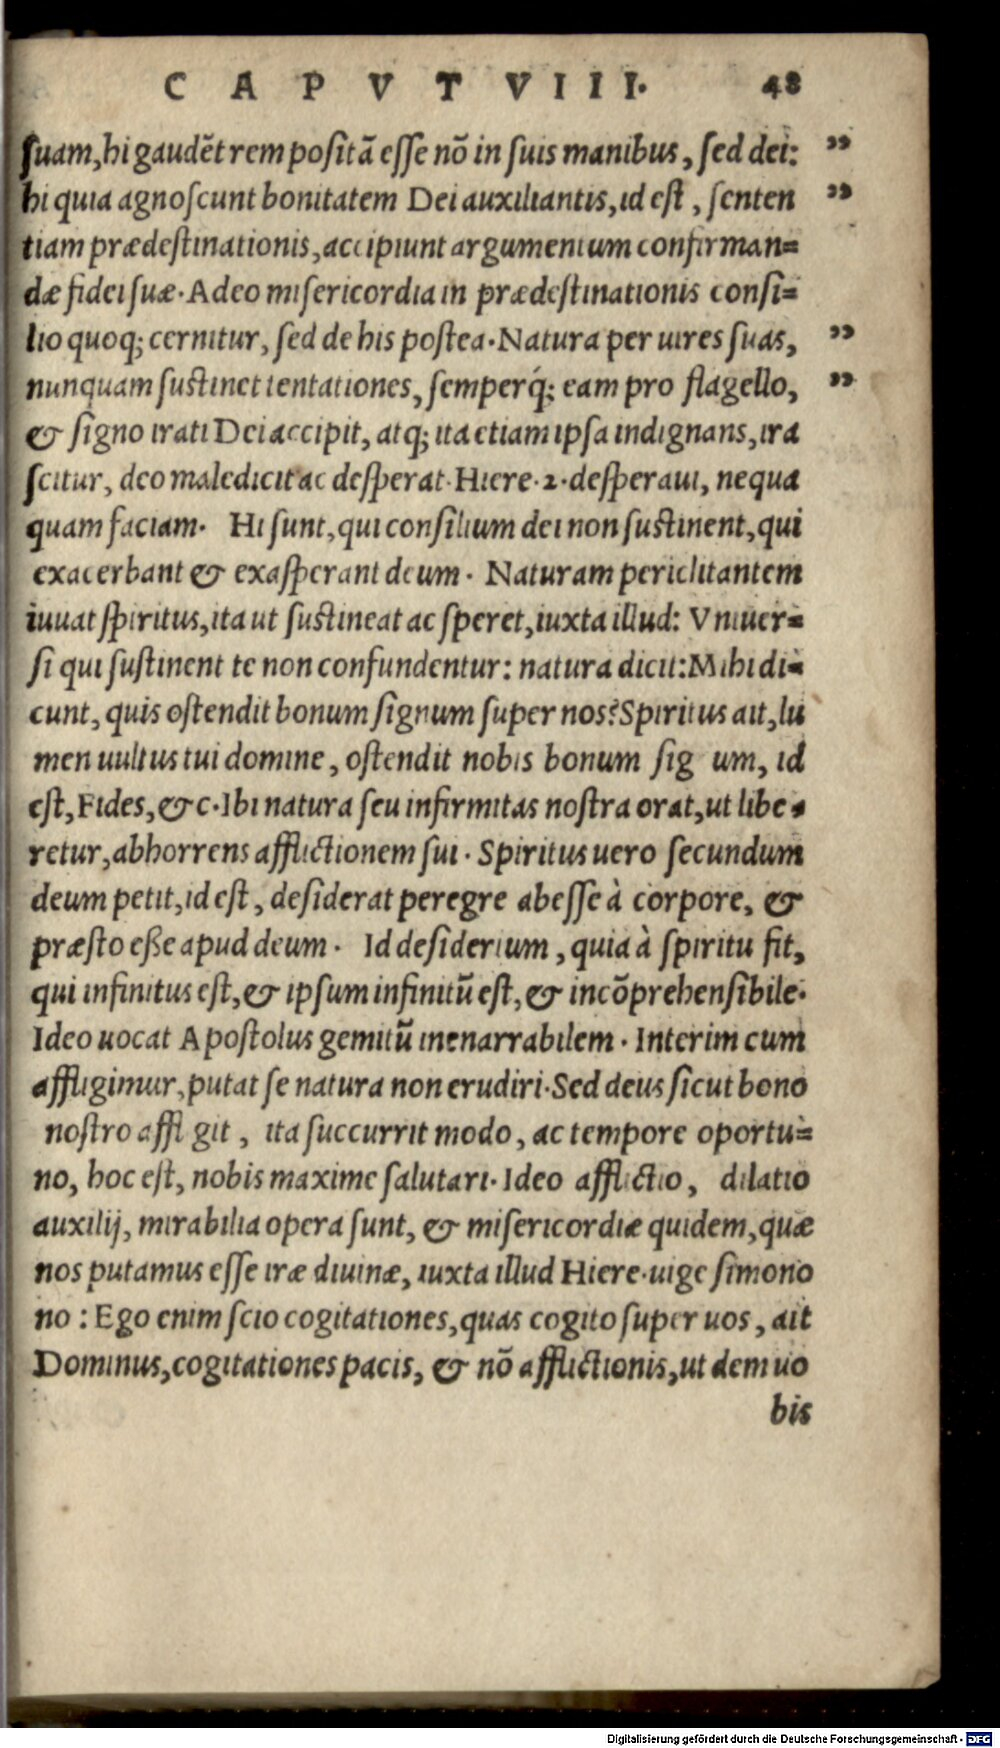 CAPVT VIII. 48
ſuam, hi gaudēt rem poſitā eſſe nō in ſuis manibus, ſed dei: ”
hi quia agnoſcunt bonitatem Dei auxiliantis, id eſt, ſenten ”
tiam prædeſtinationis, accipiunt argumentum confirman=
dæ fidei ſuæ. Adeo miſericordia in prædeſtinationis conſi=
lio quoq; cernitur, ſed de his poſtea. Natura per uires ſuas, ”
nunquam ſuſtinet tentationes, ſemperq́; eam pro flagello, ”
& ſigno irati Dei accipit, atq; ita etiam ipſa indignans, ira
ſcitur, deo maledicit ac deſperat. Hiere. 2. deſperaui, nequa
quam faciam. Hi ſunt, qui conſilium dei non ſuſtinent, qui
exacerbant & exaſperant deum. Naturam periclitantem
iuuat ſpiritus, ita ut ſuſtineat ac ſperet, iuxta illud: Vniuer=
ſi qui ſuſtinent te non confundentur: natura dicit: Mihi di=
cunt, quis oſtendit bonum ſignum super nos? Spiritus ait, lu
men uultus tui domine, oſtendit nobis bonum ſig um, id
eſt, Fides, &c. Ibi natura ſeu infirmitas noſtra orat, ut libe=
retur, abhorrens afflictionem ſui. Spiritus uero ſecundum
deum petit, id eſt, deſiderat peregre abeſſe à corpore, &
præſto eße apud deum. Id deſiderium, quia à ſpiritu fit,
qui infinitus eſt, & ipſum infinitū eſt, & incōprehenſibile.
Ideo uocat Apoſtolus gemitū inenarrabilem. Interim cum
affligimur, putat ſe natura non erudiri. Sed deus ſicut bono
noſtro affl git, ita ſuccurrit modo, ac tempore oportu=
no, hoc eſt, nobis maxime ſalutari. Ideo afflictio, dilatio
auxilij, mirabilia opera ſunt, & miſericordiæ quidem, quæ
nos putamus eſſe iræ diuinæ, iuxta illud Hiere. uige ſimono
no: Ego enim ſcio cogitationes, quas cogito ſuper uos, ait
Dominus, cogitationes pacis, & nō afflictionis, ut dem uo
bis
Digitalisierung gefördert durch die Deutsche Forschungsgemeinschaft - DFG